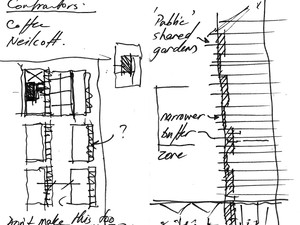 Contractors:
Coffee
Neilcott.
'Public'
shared
gardens
narrower
buffer
zone
?
Don't make this too